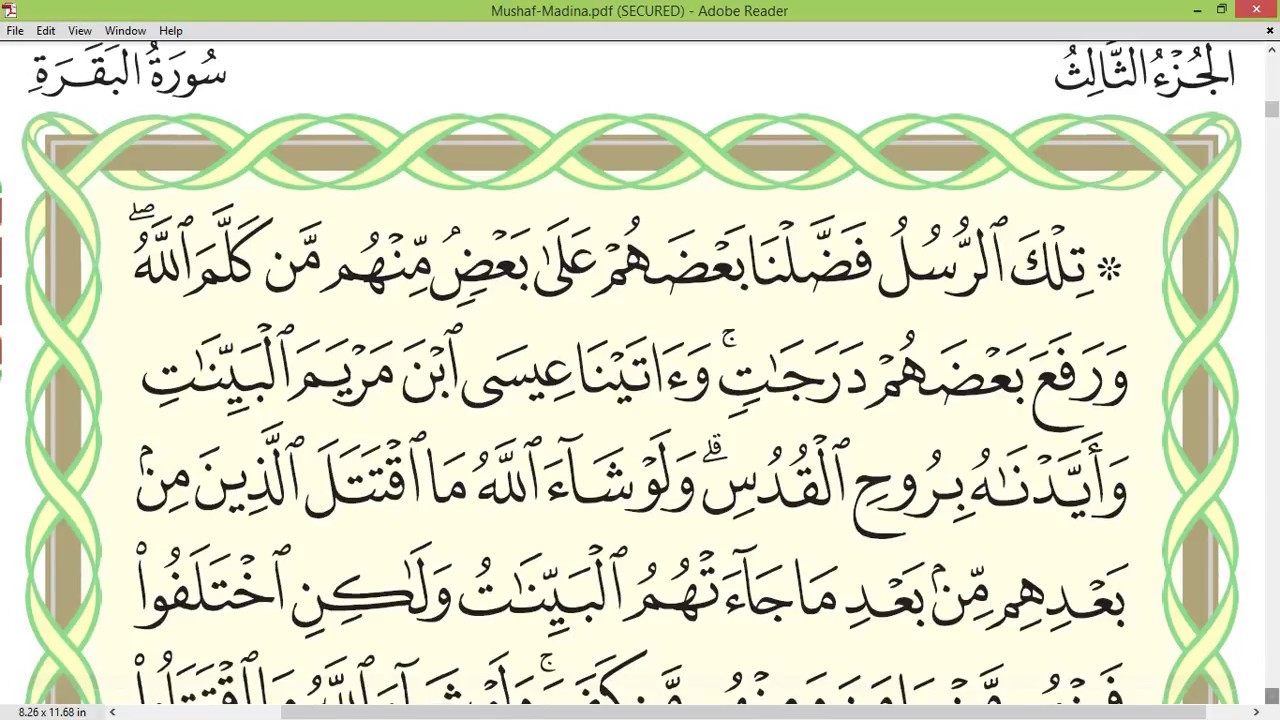 Mushaf-Madina.pdf (SECURED) - Adobe Reader
File Edit View Window Help
الْجُزْءُ الثَّالِثُ
سُورَةُ الْبَقَرَةِ
۞ تِلْكَ ٱلرُّسُلُ فَضَّلْنَا بَعْضَهُمْ عَلَىٰ بَعْضٍۢ مِّنْهُم مَّن كَلَّمَ ٱللَّهُ ۖ
وَرَفَعَ بَعْضَهُمْ دَرَجَـٰتٍۢ ۚ وَءَاتَيْنَا عِيسَى ٱبْنَ مَرْيَمَ ٱلْبَيِّنَـٰتِ
وَأَيَّدْنَـٰهُ بِرُوحِ ٱلْقُدُسِ ۗ وَلَوْ شَآءَ ٱللَّهُ مَا ٱقْتَتَلَ ٱلَّذِينَ مِنۢ
بَعْدِهِم مِّنۢ بَعْدِ مَا جَآءَتْهُمُ ٱلْبَيِّنَـٰتُ وَلَـٰكِنِ ٱخْتَلَفُوا۟
فَمِنْهُم مَّنْ ءَامَنَ وَمِنْهُم مَّن كَفَرَ ۚ وَلَوْ شَآءَ ٱللَّهُ مَا ٱقْتَتَلُوا۟
8.26 x 11.68 in